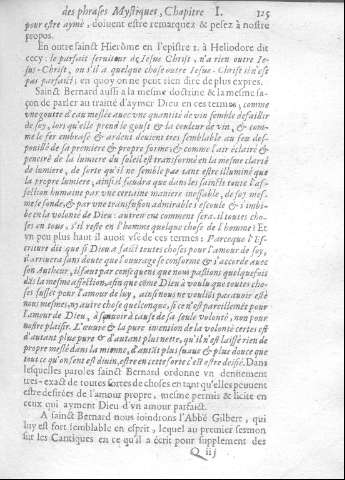 des phrases Mystiques, Chapitre I. 125
pour estre aymé, doivent estre remarquez & pesez à nostre
propos.
En outre sainct Hierôme en l'epistre 1. à Heliodore dit
cecy: le parfait serviteur de Iesus Christ, n'a rien outre Ie-
sus-Christ, ou s'il a quelque chose outre Iesus-Christ il n'est
pas parfait; en quoy on ne peut rien dire de plus expres.
Sainct Bernard aussi a la mesme doctrine & la mesme fa-
çon de parler au traité d'aymer Dieu en ces termes, comme
une goutte d'eau meslée avec une quantité de vin semble defaillir
de soy, lors qu'elle prend le goust & la couleur de vin, & com-
me le fer embrasé & ardent devient tres semblable au feu des-
pouillé de sa premiere & propre forme; & comme l'air éclairé &
penetré de la lumiere du soleil est transformé en la mesme clarté
de lumiere, de sorte qu'il ne semble pas tant estre illuminé que
la propre lumiere, ainsi il faudra que dans les saincts toute l'af-
fection humaine par une certaine maniere ineffable, de soy mes-
me se fonde, & par une transfusion admirable s'escoule & s'imbi-
be en la volonté de Dieu: autrement comment sera-il toutes cho-
ses en tous, s'il reste en l'homme quelque chose de l'homme? Et
un peu plus haut il avoit usé de ces termes: Parceque l'Es-
criture dit que si Dieu a faict toutes choses pour l'amour de soy,
il arrivera sans doute que l'ouvrage se conforme & s'accorde avec
son Autheur, il faut par consequent que nous passions quelquefois
dãs la mesme affection, afin que côme Dieu a voulu que toutes cho-
ses fussẽt pour l'amour de luy, ainsi nous ne veüillõs pas avoir esté
nous mesmes, ny autre chose quelconque, si ce n'est pareillemẽt pour
l'amour de Dieu, à sçavoir à cause de sa seule volonté, non pour
nostre plaisir. L'œuvre & la pure intention de la volonté certes est
d'autant plus pure & d'autant plus nette, qu'il n'est laissé rien de
propre meslé dans la mienne, d'autãt plus suave & plus douce que
tout ce qu'on sent est divin, estre en cette sorte c'est estre deifié. Dans
lesquelles paroles sainct Bernard ordonne un denüement
tres-exact de toutes sortes de choses en tant qu'elles peuvent
estre desirées de l'amour propre, mesme permis & licite en
ceux qui ayment Dieu d'un amour parfaict.
A sainct Bernard nous ioindrons l'Abbé Gilbert, qui
luy est fort semblable en esprit, lequel au premier sermon
sur les Cantiques en ce qu'il a écrit pour supplement des
Q iij